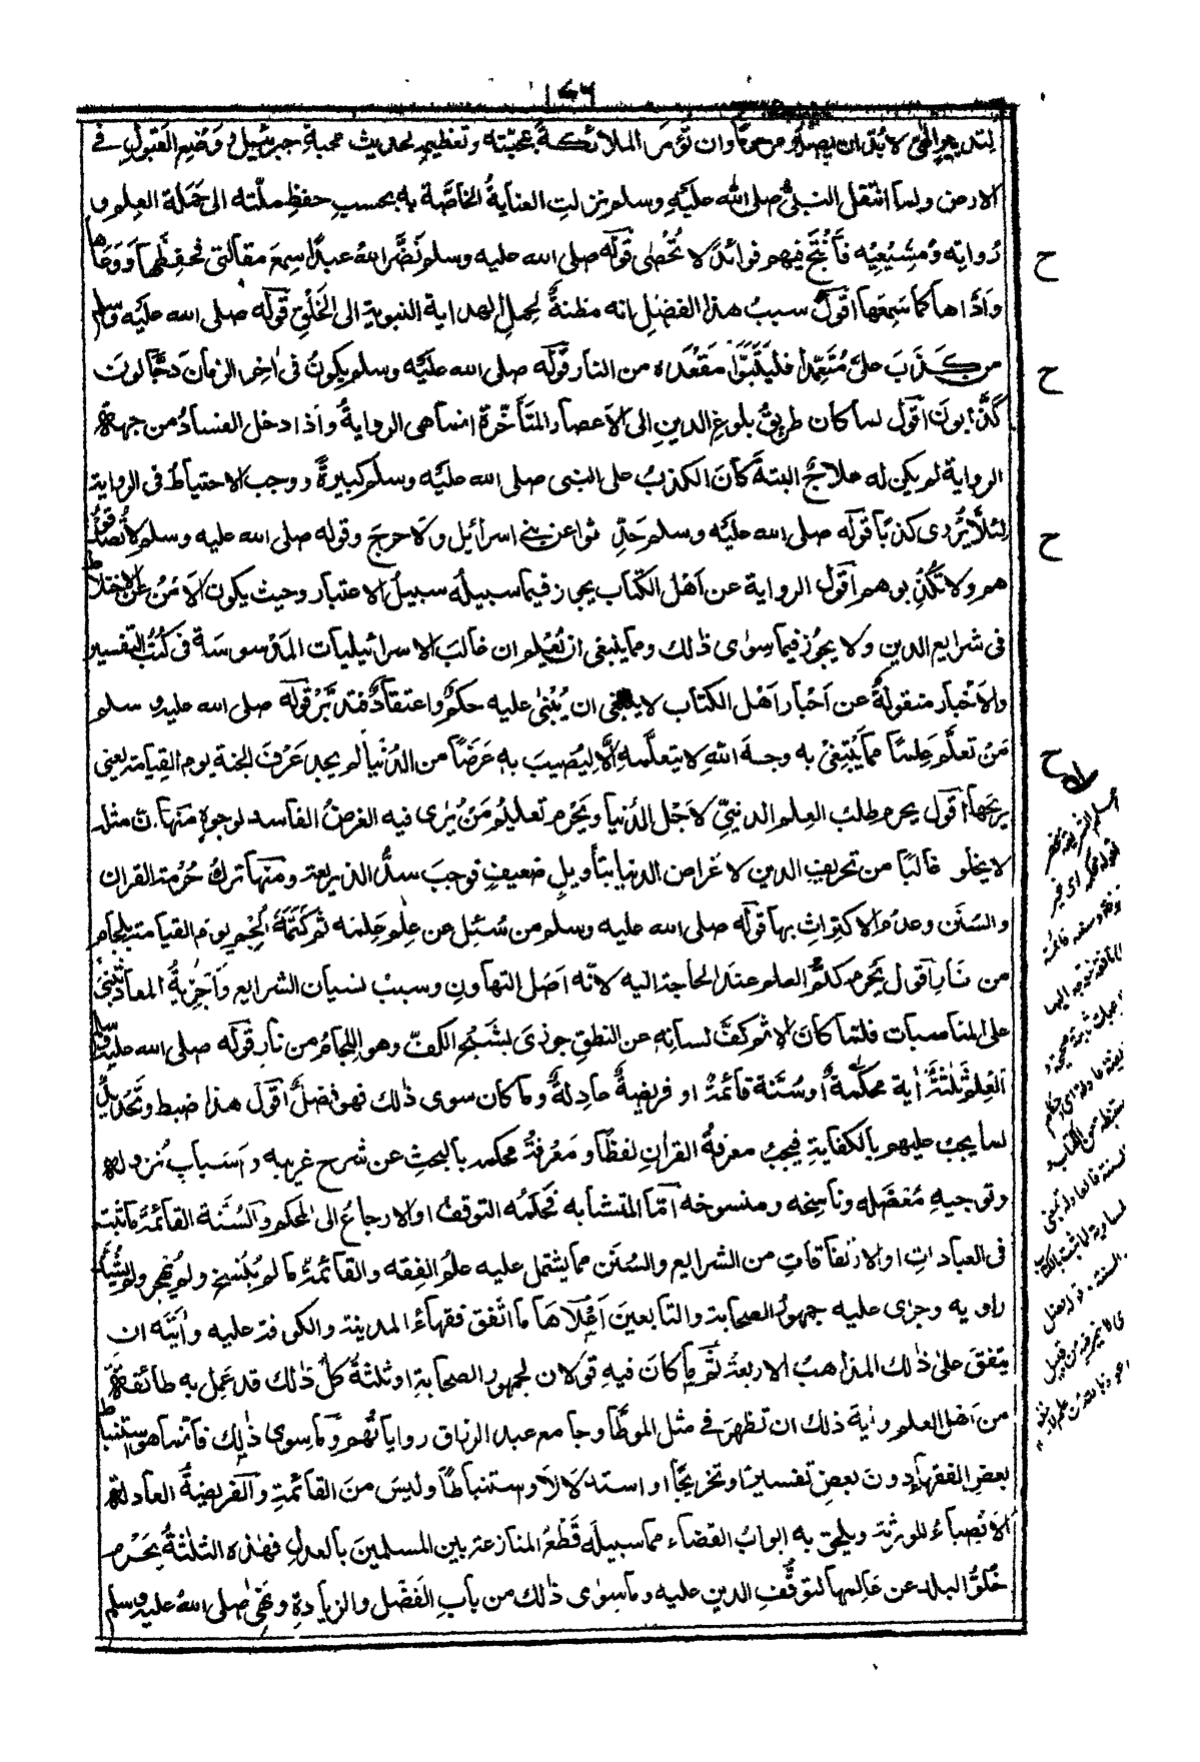 ١٧٦
لتدبير الحق لا بد ان يصلح و مرحوما وان تؤمر الملائكة بمحبته وتعظيمه لحديث محبة جبرئيل ووضع القبول فى
الارض ولما انتقل النبى صلى الله عليه وسلم نزلت العناية الخاصة به بحسب حفظ ملته الى حملة العلم و
رواته ومشيعيه فانتج فيهم فوائد لا تحصى قوله صلى الله عليه وسلم نضر الله عبدا سمع مقالتى فحفظها ووعاها
واداها كما سمعها اقول سبب هذا الفضل انه مظنة لحمل الهداية النبوية الى الخلق قوله صلى الله عليه وسلم
من كذب على متعمدا فليتبوأ مقعده من النار قوله صلى الله عليه وسلم يكون فى اخر الزمان دجالون
كذابون اقول لما كان طريق بلوغ الدين الى الاعصار المتأخرة انما هى الرواية واذا دخل الفساد من جهة
الرواية لم يكن له علاج البتة كان الكذب على النبى صلى الله عليه وسلم كبيرة ووجب الاحتياط فى الرواية
لئلا يروى كذبا قوله صلى الله عليه وسلم حدثوا عن بنى اسرائيل ولا حرج وقوله صلى الله عليه وسلم لا تصدقو
هم ولا تكذبوهم اقول الرواية عن اهل الكتاب يجوز فيما سبيله سبيل الاعتبار وحيث يكون الامن عن الاختلاط
فى شرايع الدين ولا يجوز فيما سوى ذلك ومما ينبغى ان يعلم ان غالب الاسرائيليات المدسوسة فى كتب التفسير
والاخبار منقولة عن احبار اهل الكتاب لا ينبغى ان يبنى عليه حكم واعتقاد فتدبر قوله صلى الله عليه وسلم
من تعلم علما مما يبتغى به وجه الله لا يتعلمه الا ليصيب به عرضا من الدنيا لم يجد عرف الجنة يوم القيامة يعنى
ريحها اقول يحرم طلب العلم الدينى لاجل الدنيا ويحرم تعليم من يرى فيه الغرض الفاسد لوجوه منها ان مثله
لا يخلو غالبا من تحريف الدين لاغراض الدنيا بتأويل ضعيف فوجب سد الذريعة ومنها ترك حرمة القران
والسنن وعدم الاكتراث بها قوله صلى الله عليه وسلم من سئل عن علم علمه ثم كتمه الجم يوم القيامة بلجام
من نار اقول يحرم كتم العلم عند الحاجة اليه لانه اصل التهاون وسبب نسيان الشرايع واجزية المعاد تبنى
على المناسبات فلما كان الاثم كف لسانه عن النطق جوزى بشبح الكف وهو اللجام من نار قوله صلى الله عليه وسلم
العلم ثلثة اية محكمة او سنة قائمة او فريضة عادلة وما كان سوى ذلك فهو فضل اقول هذا ضبط وتحديد
لما يجب عليهم بالكفاية فيجب معرفة القران لفظا ومعرفة محكمه بالبحث عن شرح غريبه واسباب نزوله
وتوجيه معضله وناسخه ومنسوخه اما المتشابه فحكمه التوقف او الارجاع الى المحكم والسنة القائمة ما ثبت
فى العبادات او الارتفاقات من الشرايع والسنن مما يشتمل عليه علم الفقه والقائمة ما لم ينسخ ولم يهجر ولم يشذ
راويه وجرى عليه جمهور الصحابة والتابعين اعلاها ما اتفق فقهاء المدينة والكوفة عليه وايته ان
يتفق على ذلك المذاهب الاربعة ثم ما كان فيه قولان لجمهور الصحابة او ثلثة كل ذلك قد عمل به طائفة
من اهل العلم واية ذلك ان تظهر فى مثل الموطأ وجامع عبد الرزاق رواياتهم وما سوى ذلك فانما هو استنباط
بعض الفقهاء دون بعض تفسيرا وتخريجا او استدلالا واستنباطا وليس من القائمة والفريضة العادلة
الانصباء للورثة ويلحق به ابواب القضاء مما سبيله قطع المنازعة بين المسلمين بالعدل فهذه الثلثة يحرم
خلو البلد عن عالمها لتوقف الدين عليه وما سوى ذلك من باب الفضل والزيادة ونهى صلى الله عليه وسلم
ح
ح
ح
ح